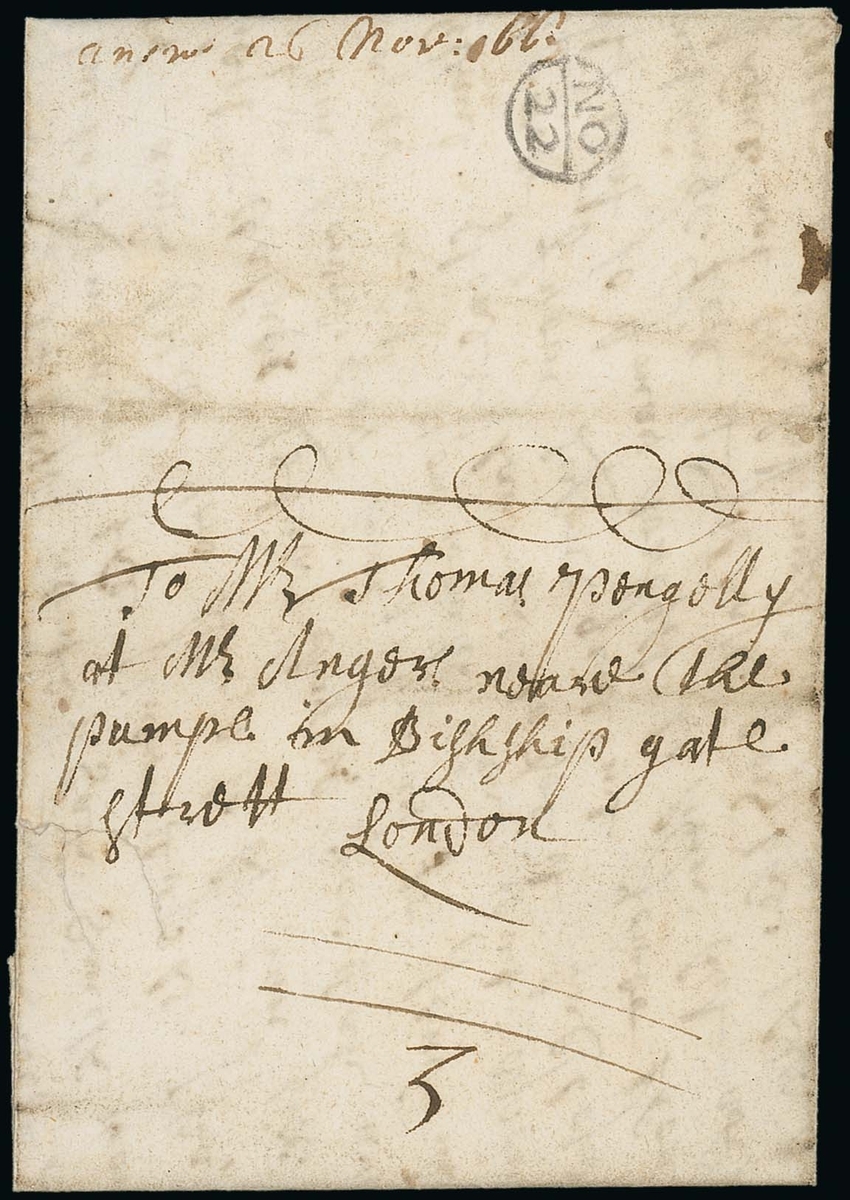 answ 26 Nov: 1661
NO
22
To Mr Thomas Pengelly
at Mr Angers neare the
pumpe in Bishship gate
strett London
3